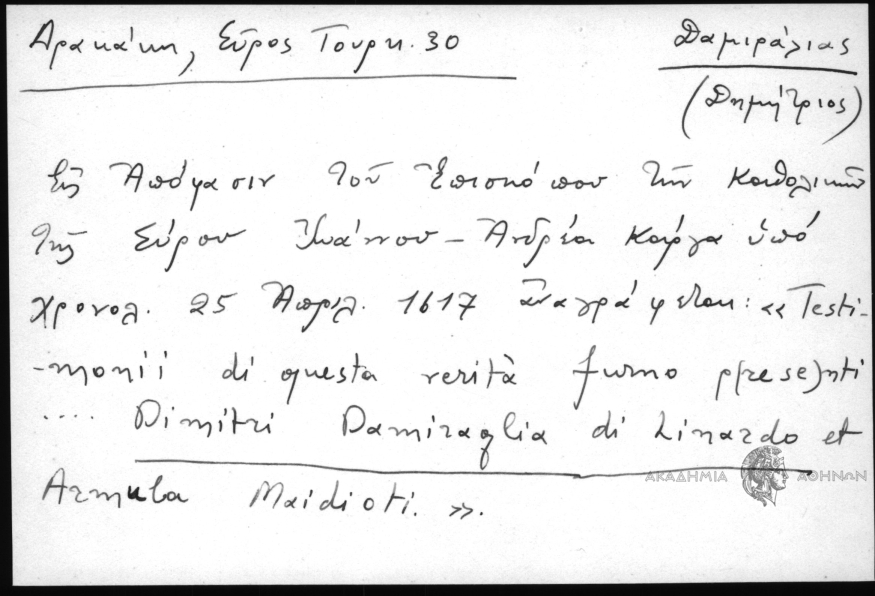 Δρακάκη, Σύρος Τουρκ. 30
Δαμιράλιας
(Δημήτριος)
Εἰς Ἀπόφασιν τοῦ Ἐπισκόπου τῶν Καθολικῶν
τῆς Σύρου Ἰωάννου - Ἀνδρέα Κάργα ὑπό
χρονολ. 25 Ἀπριλ. 1617 ἀναγράφεται: «Testi-
-monii di questa verità furno p(rese)nti
.... Dimitri Damiraglia di Linardo et
Maidioti. ».
ΑΚΑΔΗΜΙΑ ΑΘΗΝΩΝ